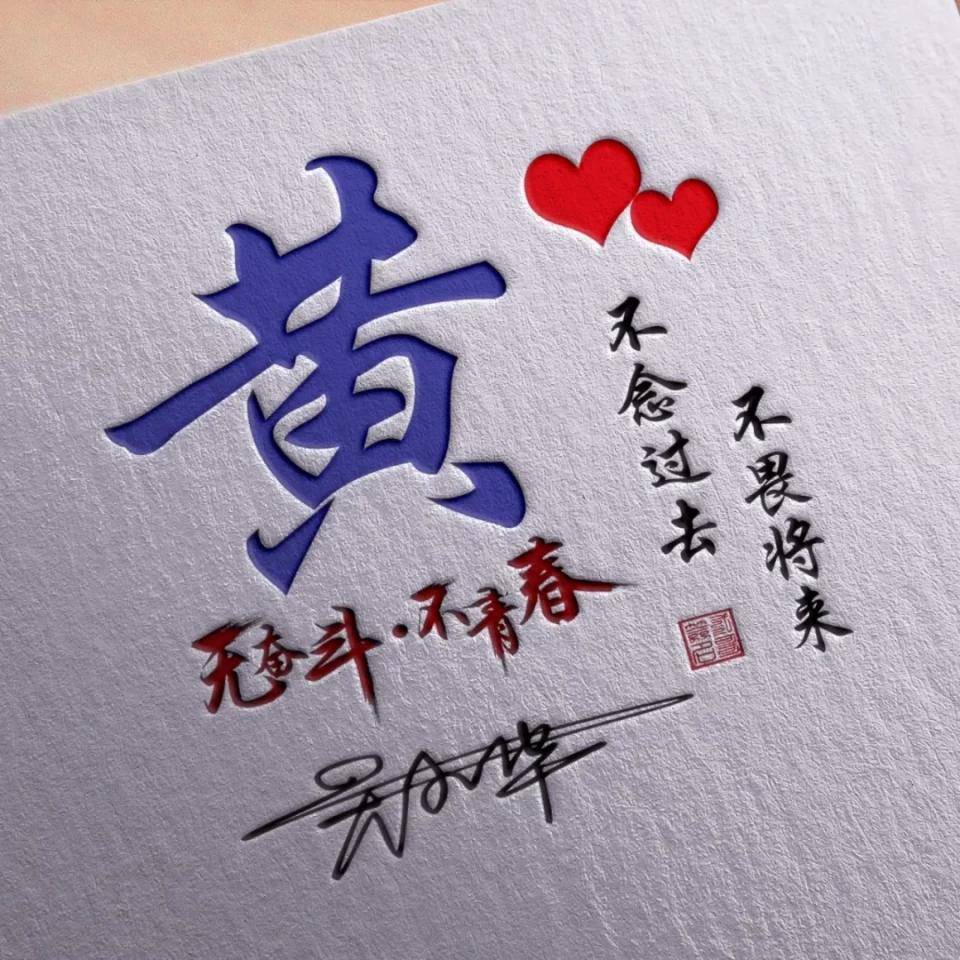 黄
不念过去
不畏将来
无奋斗·不青春